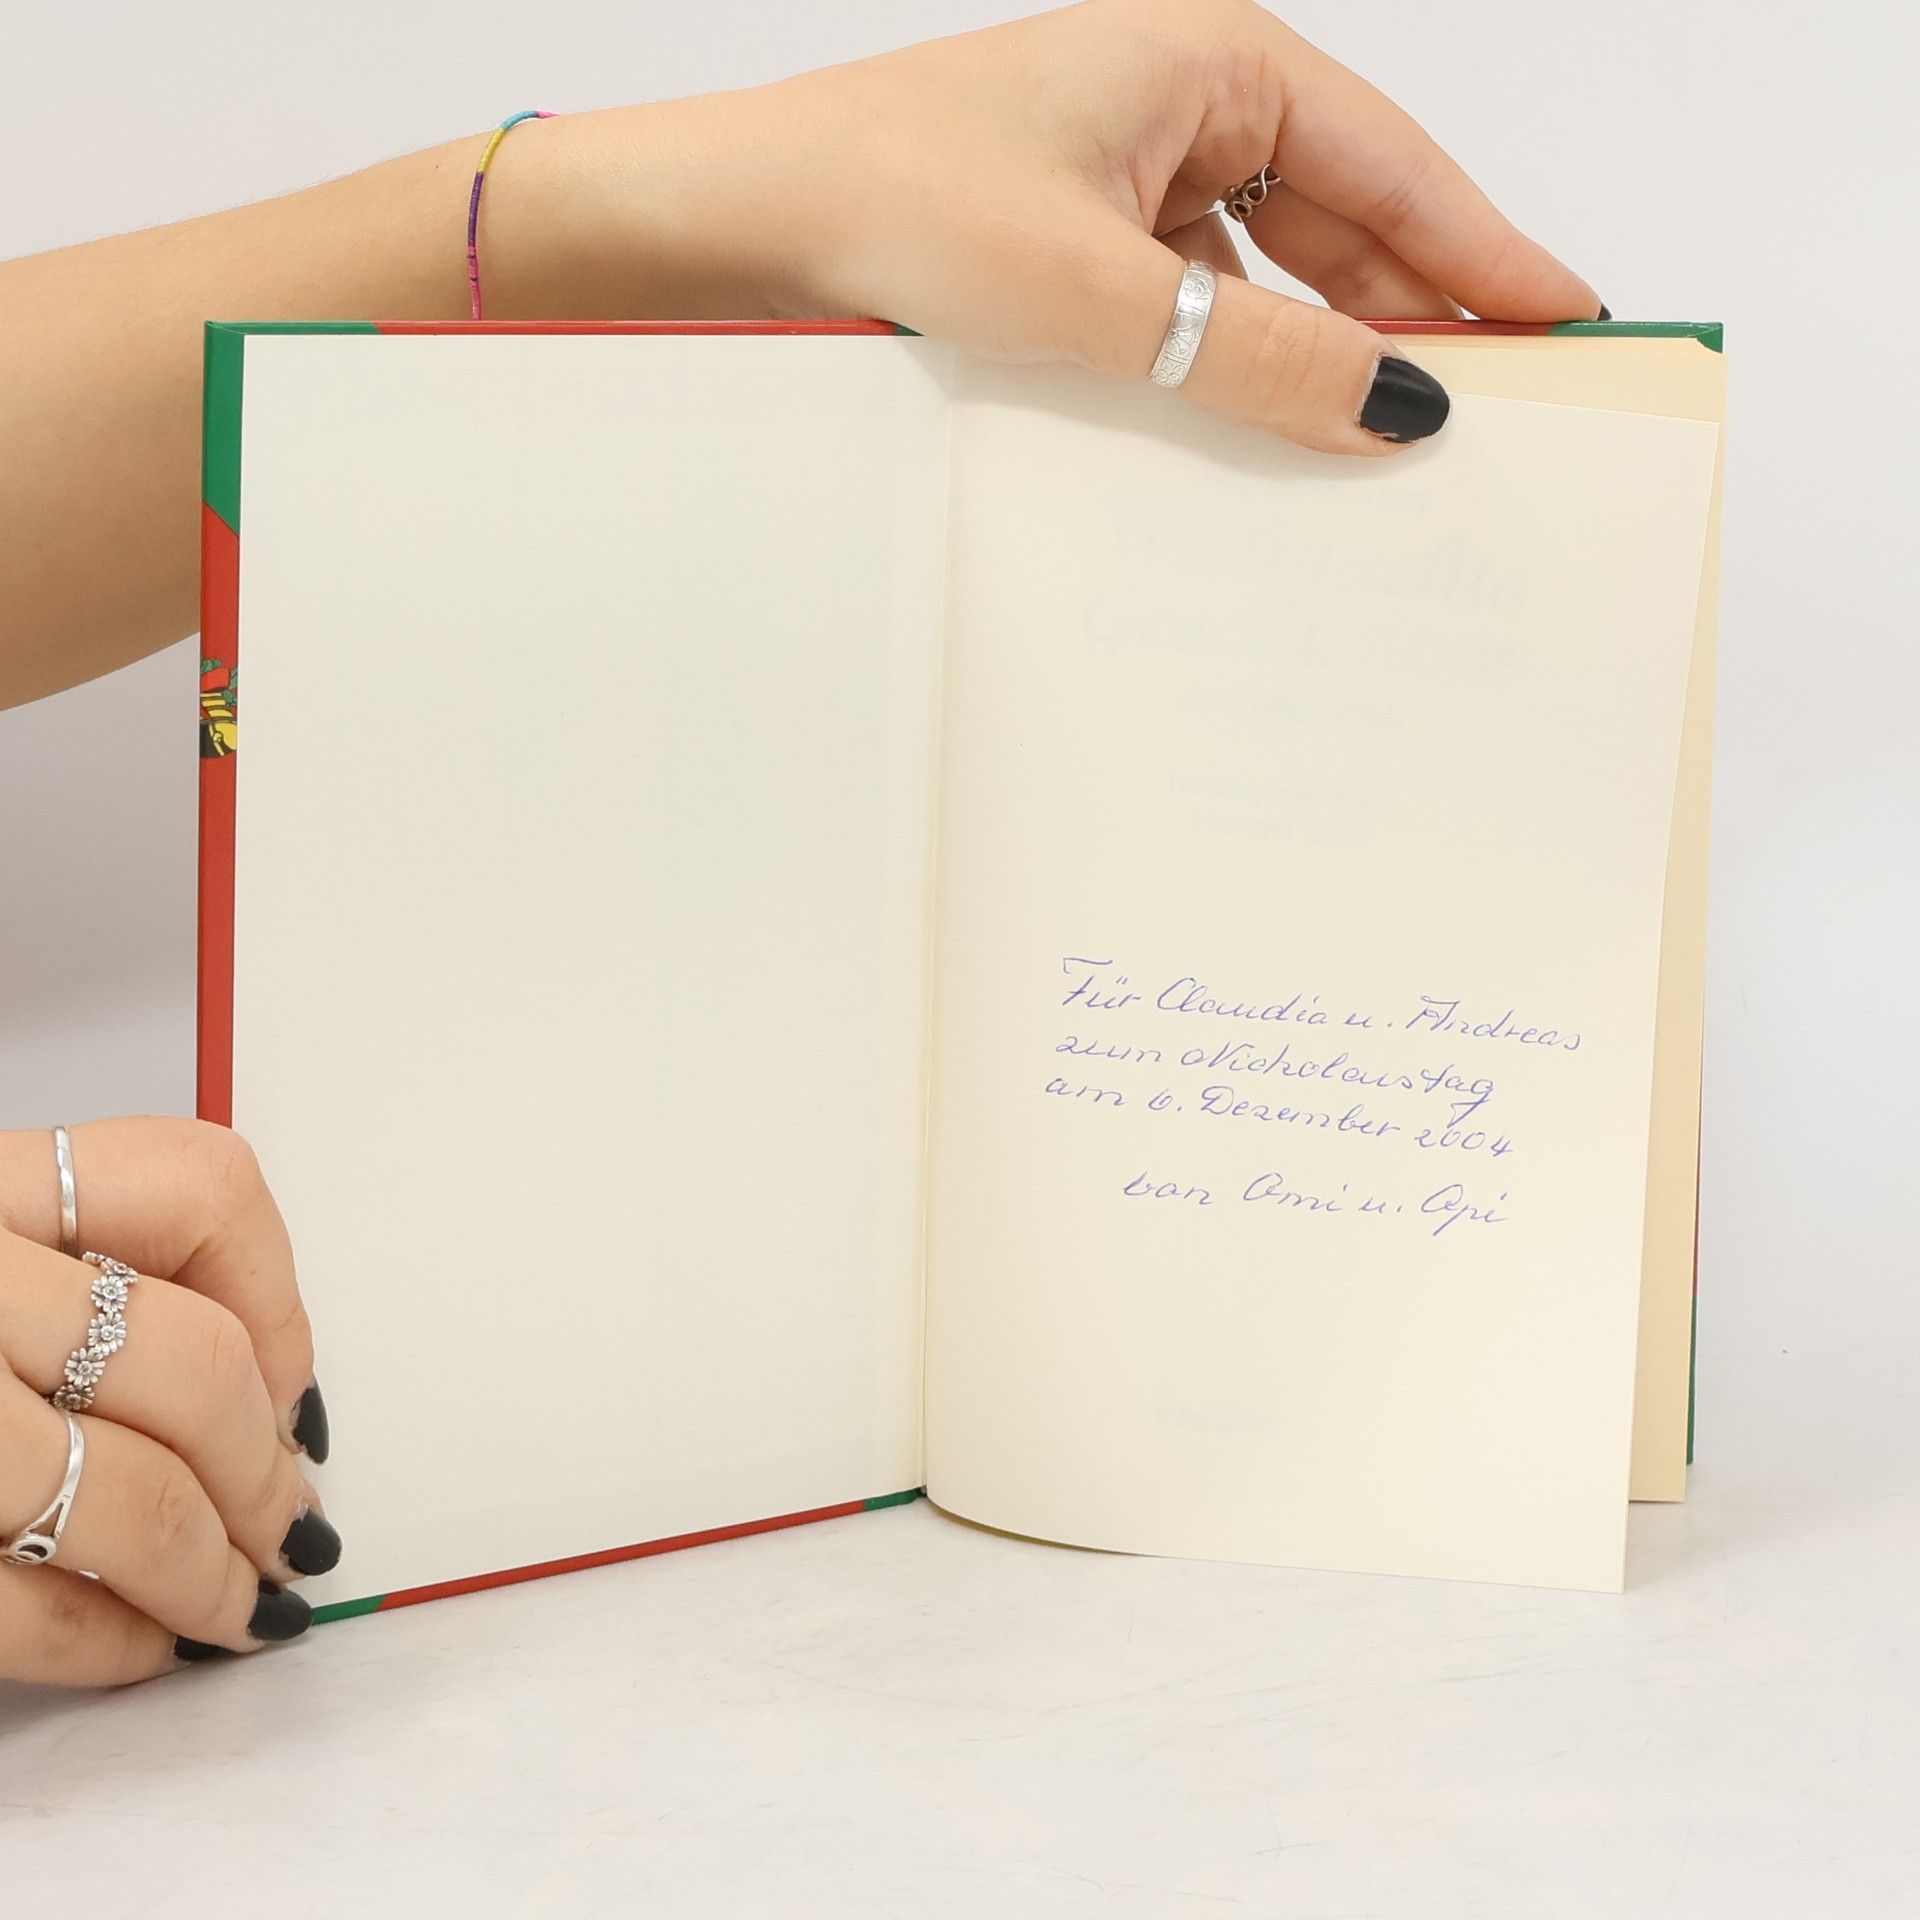 Für Claudia u. Andreas
zum Nickolaustag
am 6. Dezember 2004
von Omi u. Opi